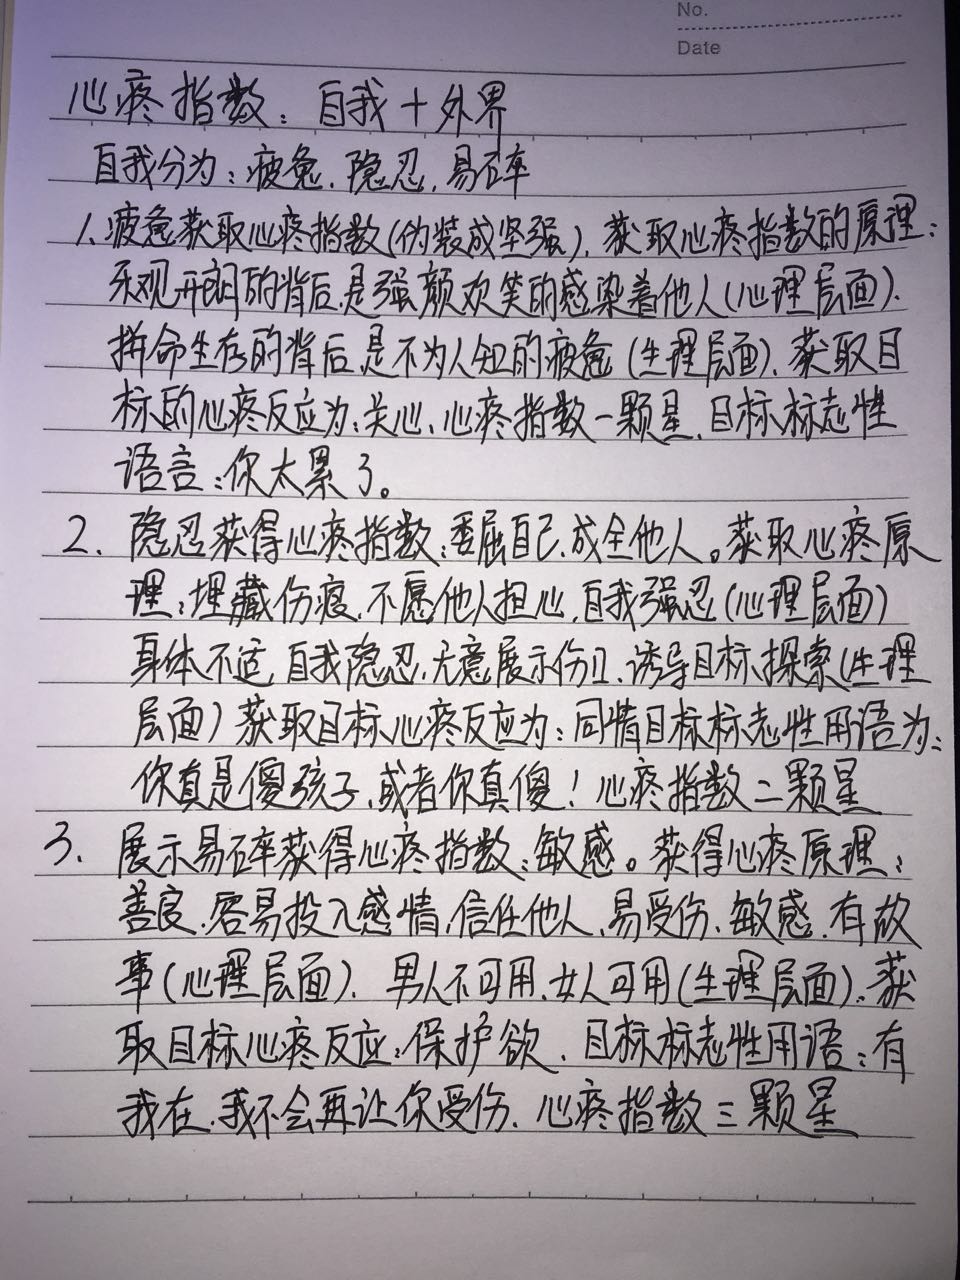 No.
Date
心疼指数：自我＋外界
自我分为：疲惫、隐忍、易碎
1、疲惫获取心疼指数(伪装成坚强)、获取心疼指数的原理：
乐观开朗的背后是强颜欢笑的感染着他人(心理层面)、
拼命生存的背后是不为人知的疲惫(生理层面)、获取目
标的心疼反应为：关心、心疼指数一颗星、目标标志性
语言：你太累了。
2、隐忍获得心疼指数：委屈自己、成全他人。获取心疼原
理：埋藏伤疫、不愿他人担心、自我强忍(心理层面)
身体不适、自我隐忍、无意展示伤口、诱导目标探索(生理
层面)获取目标心疼反应为：同情目标标志性用语为：
你真是傻孩子、或者你真傻！心疼指数二颗星
3、展示易碎获得心疼指数：敏感。获得心疼原理：
善良、容易投入感情、信任他人、易受伤、敏感、有故
事(心理层面)、男人不可用、女人可用(生理层面)、获
取目标心疼反应：保护欲、目标标志性用语：有
我在、我不会再让你受伤、心疼指数三颗星